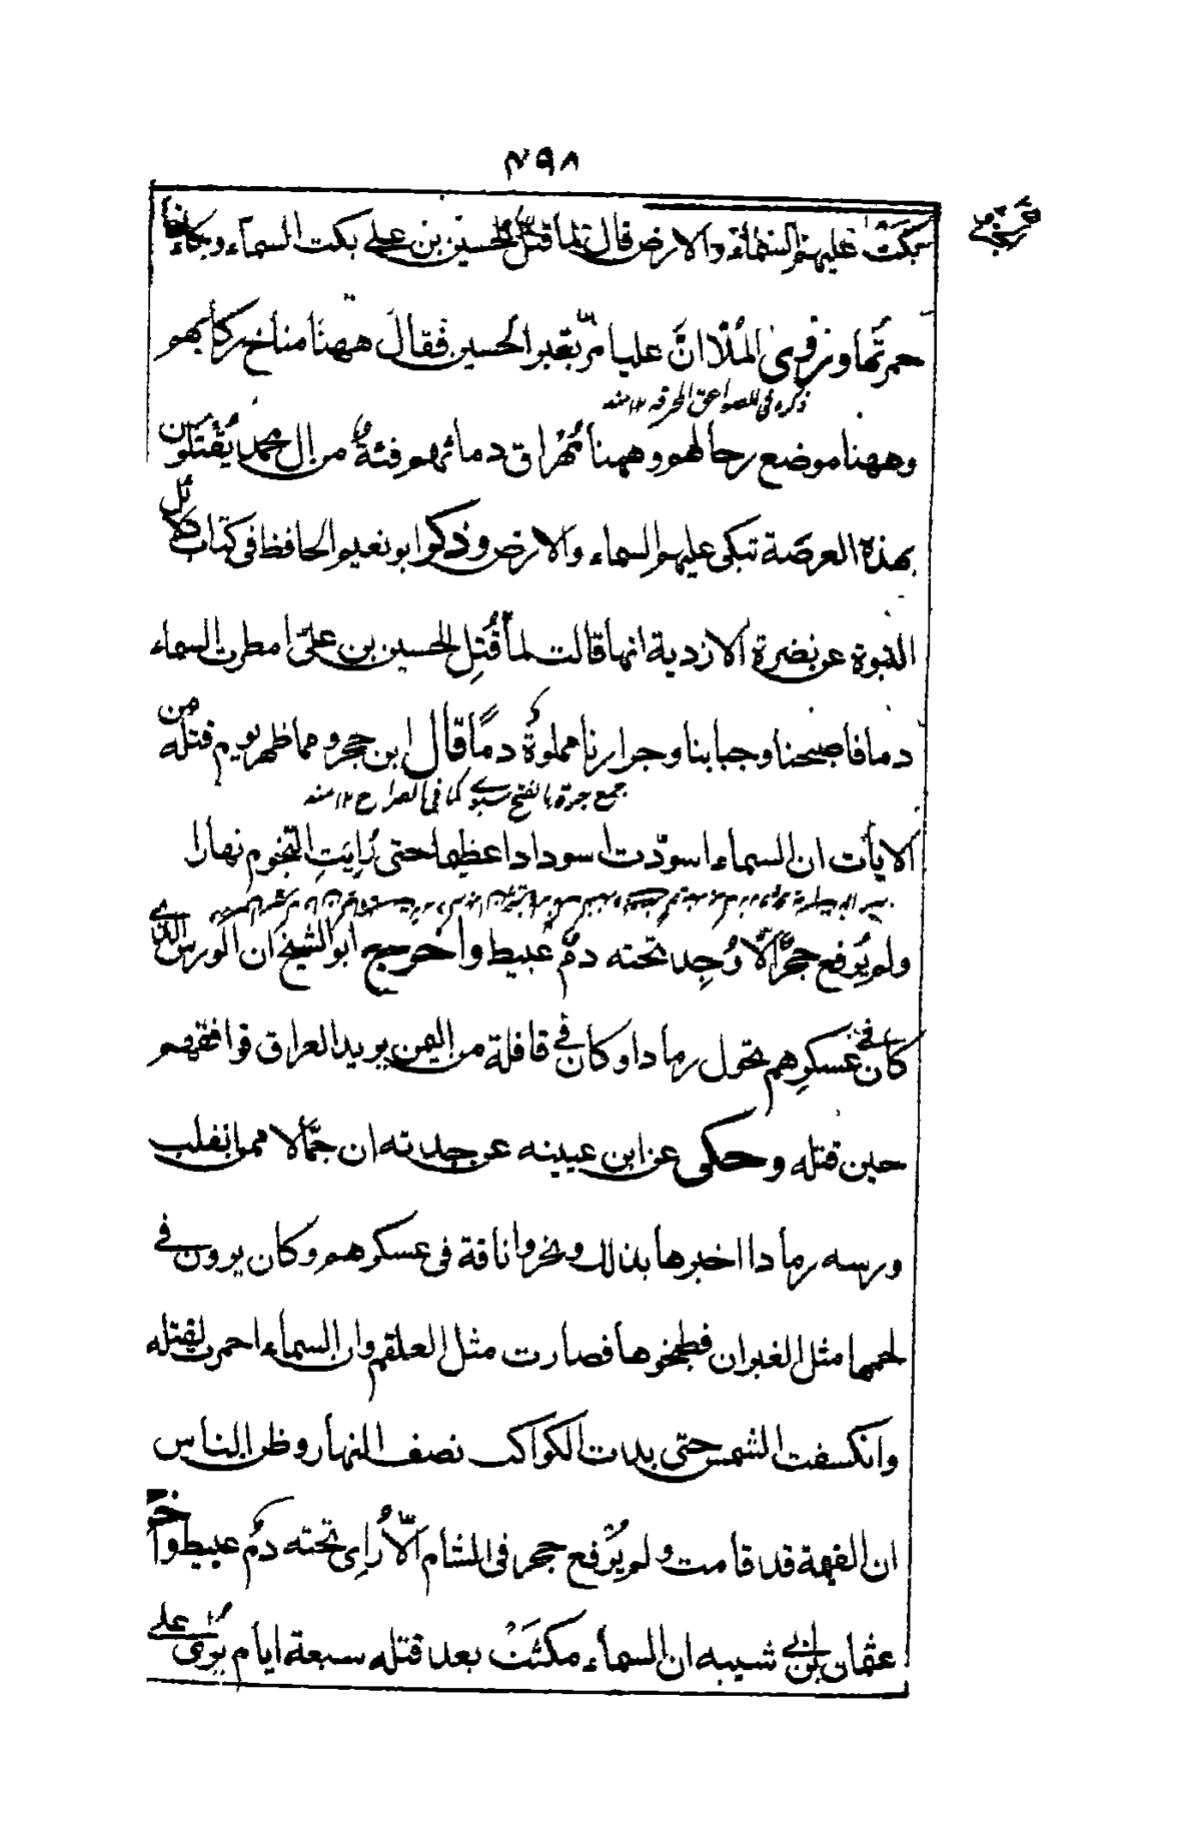 ۴۹۸
بكت عليهم السماء والارض قال لما قتل الحسين بن علي بكت السماء وبكاءها
حمرتها وروى الملا ان عليا مر بقبر الحسين فقال ههنا مناخ ركابهم
ذكره في الصواعق المحرقة ۱۲ منه
وههنا موضع رحالهم وههنا تُهراق دمائهم فئة من ال محمد يُقتلون
بهذه العرصة تبكى عليهم السماء والارض وذكر ابو نعيم الحافظ فى كتاب دلائل
النبوة عن نضرة الازدية انها قالت لما قُتِل الحسين بن علىّ امطرت السماء
دما فاصبحنا وجبابنا وجرارنا مملوة دمًا قال ابن حجر ومما ظهر يوم قتله من
جمع جرة بالفتح سبوے كما في الصراح ۱۲ منه
الايات ان السماء اسودّت اسودادا عظيما حتى رُايَتِ النجوم نهارا
ولم يُرفع حجرٌ الّا وُجِد تحته دمٌ عبيط واخرج ابو الشيخ ان الورس الذى
كان فى عسكرِهم تحول رمادا وكان فى قافلة من اليمن يريد العراق فوافقهم
حين قتله وحكى عن ابن عيينه عن جدته ان جمّالا ممن انقلب
ورسه رمادا اخبرها بذلك ونحروا ناقة فى عسكرهم وكان يرون فى
لحمها مثل الغيران فطبخوها فصارت مثل العلقم وان السماء احمرت لقتله
وانكسفت الشمس حتى بدات الكواكب نصف النهار وظن الناس
ان القيمة قد قامت ولم يُرفع حجر فى الشام الّا رُاِى تحته دمٌ عبيط واخرج
عثمان بن ابى شيبه ان السماء مكثَتْ بعد قتله سبعة ايام تُرى على